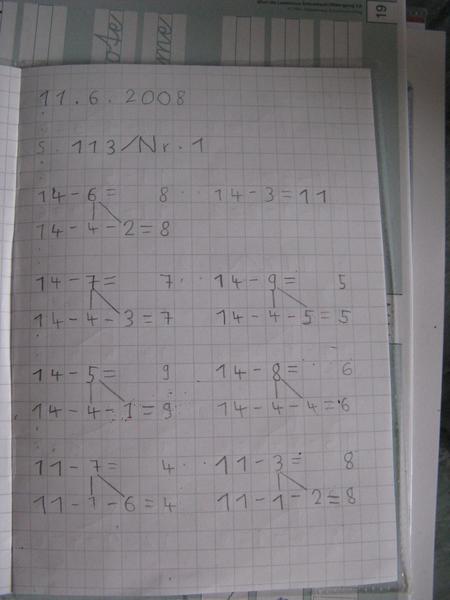 19
11.6.2008
S. 113/Nr. 1
14-6= 8 14-3=11
14-4-2=8
14-7= 7 14-9= 5
14-4-3=7 14-4-5=5
14-5= 9 14-8= 6
14-4-1=9 14-4-4=6
11-7= 4 11-3= 8
11-1-6=4 11-1-2=8